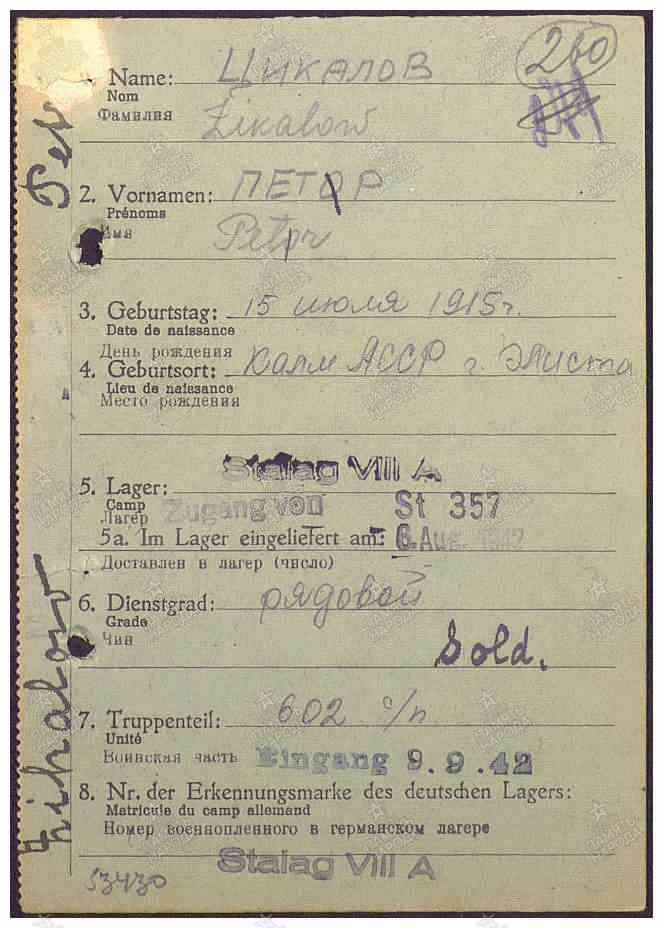 260
Name: ЦИКАЛОВ
Nom
Фамилия Zikalow
2. Vornamen: ПЕТОР
Prénoms
Имя Petor
3. Geburtstag: 15 июля 1915г.
Date de naissance
День рождения
4. Geburtsort: Калм АССР г. Элиста
Lieu de naissance
Место рождения
Stalag VIII A
5. Lager:
Camp
Лагер
Zugang von St 357
5a. Im Lager eingeliefert am: 6. Aug. 1942
Доставлен в лагер (число)
6. Dienstgrad: рядовой
Grade
Чин
Sold.
7. Truppenteil: 602 с/п
Unité
Воинская часть
Eingang 9.9.42
8. Nr. der Erkennungsmarke des deutschen Lagers:
Matricule du camp allemand
Номер военнопленного в германском лагере
Stalag VIII A
53430
Zikalow Petr